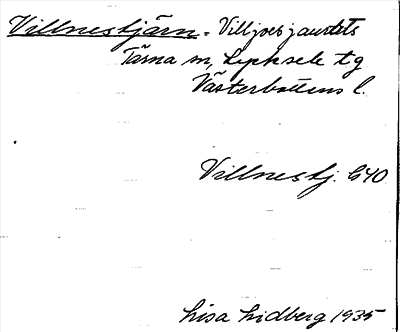 Villnestjärn = Villjoesjaurdets
Tärna sn, Lycksele tg
Västerbottens l.
Villnestj. G40
Lisa Lidberg 1935